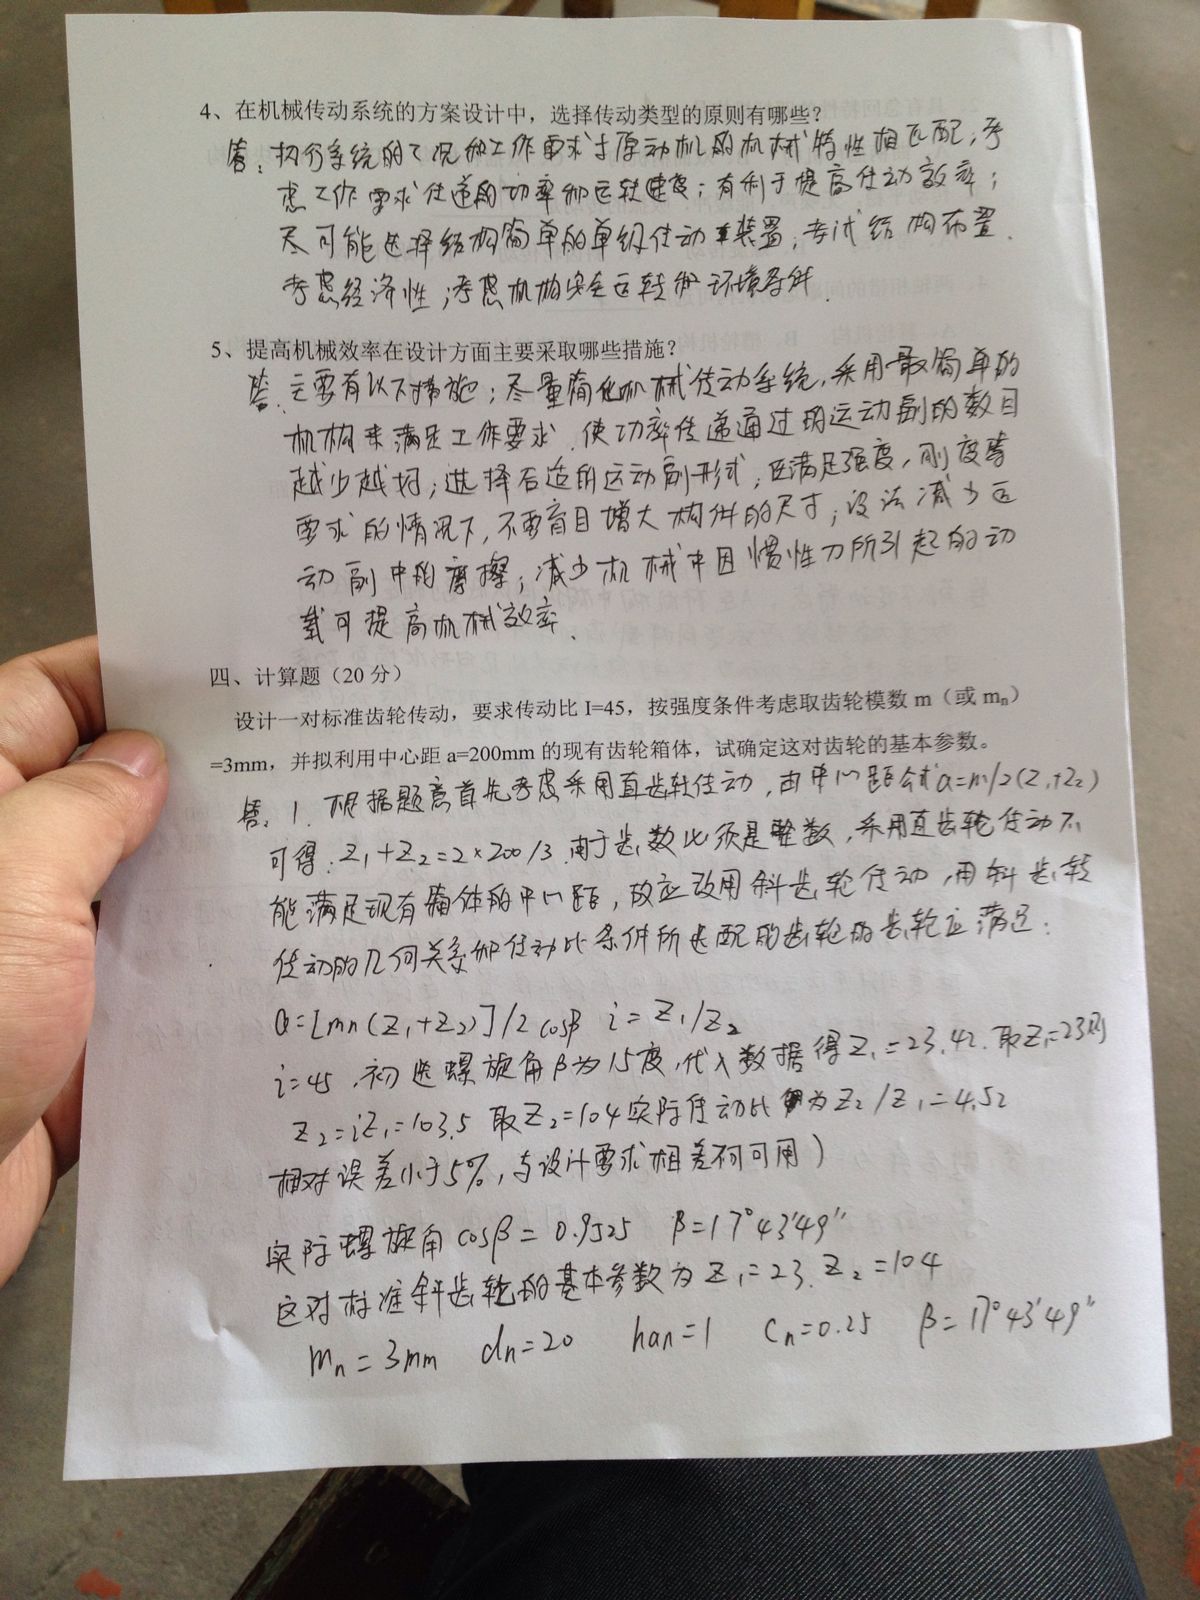 4、在机械传动系统的方案设计中，选择传动类型的原则有哪些？
答：执行系统的工况和工作要求与原动机的机械特性相匹配；考
虑工作要求传递的功率和运转速度；有利于提高传动效率；
尽可能选择结构简单的单级传动装置；考试结构布置．
考虑经济性；考虑机构安全运转和环境条件．
5、提高机械效率在设计方面主要采取哪些措施？
答．主要有以下措施；尽量简化机械传动系统，采用最简单的
机构来满足工作要求．使功率传递通过的运动副的数目
越少越好；选择合适的运动副形式；在满足强度，刚度等
要求的情况下，不要盲目增大构件的尺寸；设法减少运
动副中的摩擦；减少机械中因惯性力所引起的动
载可提高机械效率．
四、计算题（20 分）
设计一对标准齿轮传动，要求传动比 I=45，按强度条件考虑取齿轮模数 m（或 mn）
=3mm，并拟利用中心距 a=200mm 的现有齿轮箱体，试确定这对齿轮的基本参数。
答．1．根据题意首先考虑采用直齿轮传动，由中心距公式a=m/2(Z1+Z2)
可得．Z1+Z2=2×200/3．由于齿数比须是整数，采用直齿轮传动不
能满足现有箱体的中心距，故应改用斜齿轮传动，用斜齿轮
传动的几何关系和传动比条件所选配的齿轮的齿轮应满足：
a=[mn(Z1+Z2)]/2cosβ i=Z1/Z2
i=45．初选螺旋角β为15度，代入数据得Z1=23.42．取Z1=23则
Z2=iZ1=103.5 取Z2=104实际传动比为Z2/Z1=4.52
相对误差小于5%，与设计要求相差不可用)
实际螺旋角cosβ=0.9525 β=17°43′49″
这对标准斜齿轮的基本参数为Z1=23．Z2=104
mn=3mm dn=20 han=1 Cn=0.25 β=17°43′49″